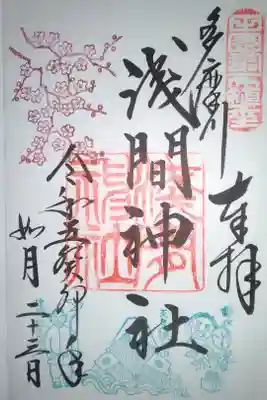 多摩川
奉拝
浅間神社
令和五癸卯年
如月二十三日